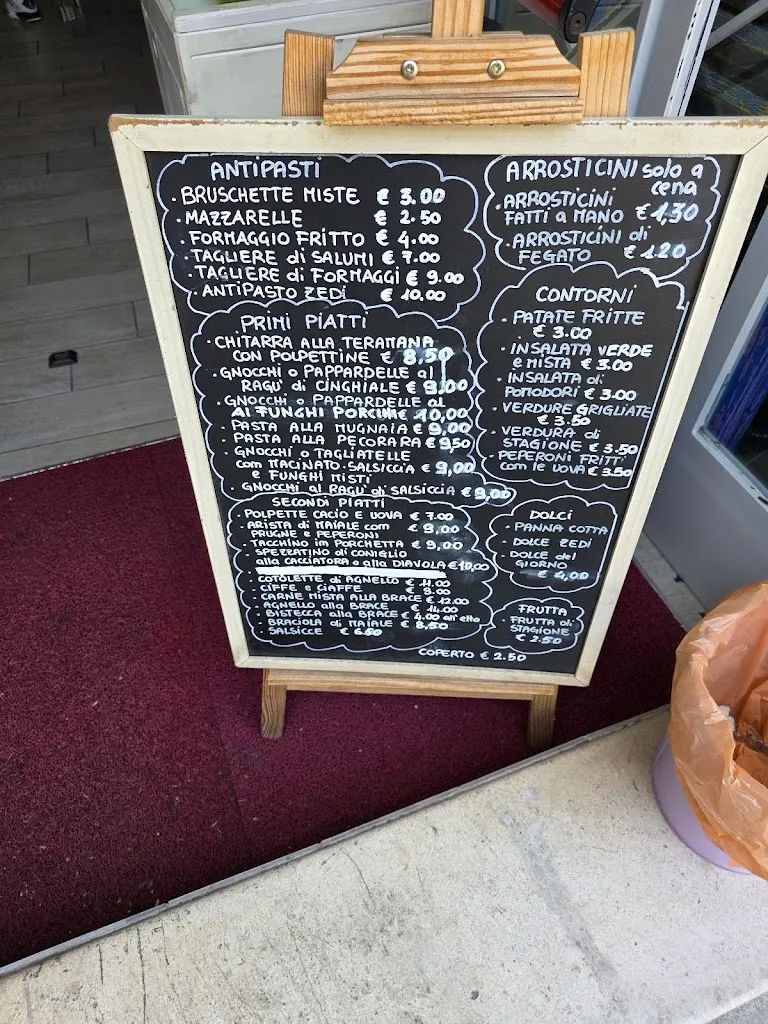 ANTIPASTI
· BRUSCHETTE MISTE € 3.00
· MAZZARELLE € 2.50
· FORMAGGIO FRITTO € 4.00
· TAGLIERE di SALUMI € 7.00
· TAGLIERE di FORMAGGI € 9.00
· ANTIPASTO ZEDI € 10.00
PRIMI PIATTI
· CHITARRA ALLA TERAMANA
CON POLPETTINE € 8,50
· GNOCCHI o PAPPARDELLE al
RAGU' di CINGHIALE € 9.00
· GNOCCHI o PAPPARDELLE al
AI FUNGHI PORCINI € 10,00
· PASTA ALLA MUGNAIA € 9,00
· PASTA ALLA PECORARA € 9,50
· GNOCCHI o TAGLIATELLE
con MACINATO·SALSICCIA € 9,00
e FUNGHI MISTI
· GNOCCHI al RAGU' di SALSICCIA € 9,00
SECONDI PIATTI
· POLPETTE CACIO E UOVA € 7.00
· ARISTA di MAIALE com € 9,00
PRUGNE e PEPERONI
· TACCHINO im PORCHETTA € 9,00
· SPEZZATINO di CONIGLIO
alla CACCIATORA o alla DIAVOLA € 10,00
· COTOLETTE di AGNELLO € 11.00
· CIFFE e CIAFFE € 9.00
· CARNE MISTA ALLA BRACE € 12.00
· AGNELLO alla BRACE € 14.00
· BISTECCA alla BRACE € 4.00 all'etto
· BRACIOLA di MAIALE € 8,50
· SALSICCE € 6.50
ARROSTICINI solo a
cena
· ARROSTICINI
FATTI a MANO € 1,30
· ARROSTICINI di
FEGATO € 1.20
CONTORNI
· PATATE FRITTE
€ 3.00
· INSALATA VERDE
e MISTA € 3.00
· INSALATA di
POMODORI € 3.00
· VERDURE GRIGLIATE
€ 3.50
· VERDURA di
STAGIONE € 3.50
· PEPERONI FRITTI
com le UOVA € 3.50
DOLCI
· PANNA COTTA
· DOLCE ZEDI
· DOLCE del
GIORNO
€ 4,00
FRUTTA
· FRUTTA di
STAGIONE
€ 2.50
COPERTO € 2.50